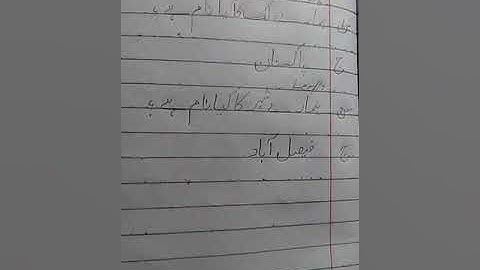 س ہمارے ملک کا کیا نام ہے؟
ج پاکستان
س ہمارے شہر کا کیا نام ہے؟
ج فیصل آباد